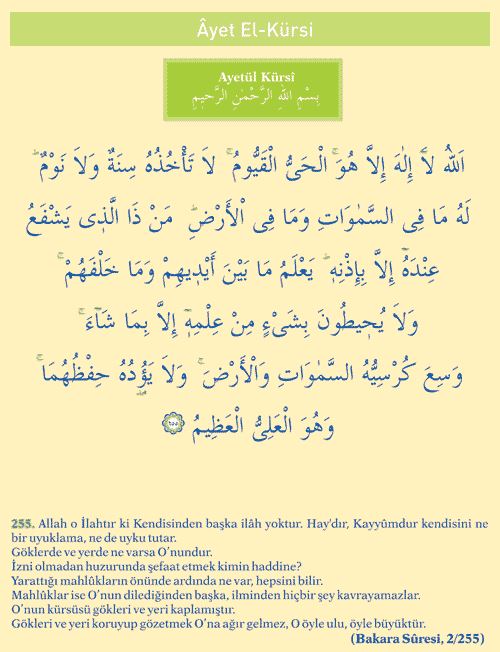 Âyet El-Kürsi
Ayetül Kürsî
بِسْمِ اللهِ الرَّحْمٰنِ الرَّحِيمِ
اَللهُ لَٓا اِلٰهَ اِلَّا هُوَۚ اَلْحَىُّ الْقَيُّومُۚ لَا تَأْخُذُهُ سِنَةٌ وَلَا نَوْمٌۜ
لَهُ مَا فِى السَّمٰوَاتِ وَمَا فِى الْاَرْضِۜ مَنْ ذَا الَّذٖى يَشْفَعُ
عِنْدَهُٓ اِلَّا بِاِذْنِهٖۜ يَعْلَمُ مَا بَيْنَ اَيْدٖيهِمْ وَمَا خَلْفَهُمْۚ
وَلَا يُحٖيطُونَ بِشَىْءٍ مِنْ عِلْمِهٖٓ اِلَّا بِمَا شَٓاءَۚ
وَسِعَ كُرْسِيُّهُ السَّمٰوَاتِ وَالْاَرْضَۚ وَلَا يَؤُ۫دُهُ حِفْظُهُمَاۚ
وَهُوَ الْعَلِىُّ الْعَظٖيمُ ﴿٢٥٥﴾
255. Allah o İlahtır ki Kendisinden başka ilâh yoktur. Hay'dır, Kayyûmdur kendisini ne
bir uyuklama, ne de uyku tutar.
Göklerde ve yerde ne varsa O'nundur.
İzni olmadan huzurunda şefaat etmek kimin haddine?
Yarattığı mahlûkların önünde ardında ne var, hepsini bilir.
Mahlûklar ise O'nun dilediğinden başka, ilminden hiçbir şey kavrayamazlar.
O'nun kürsüsü gökleri ve yeri kaplamıştır.
Gökleri ve yeri koruyup gözetmek O'na ağır gelmez, O öyle ulu, öyle büyüktür.
(Bakara Sûresi, 2/255)